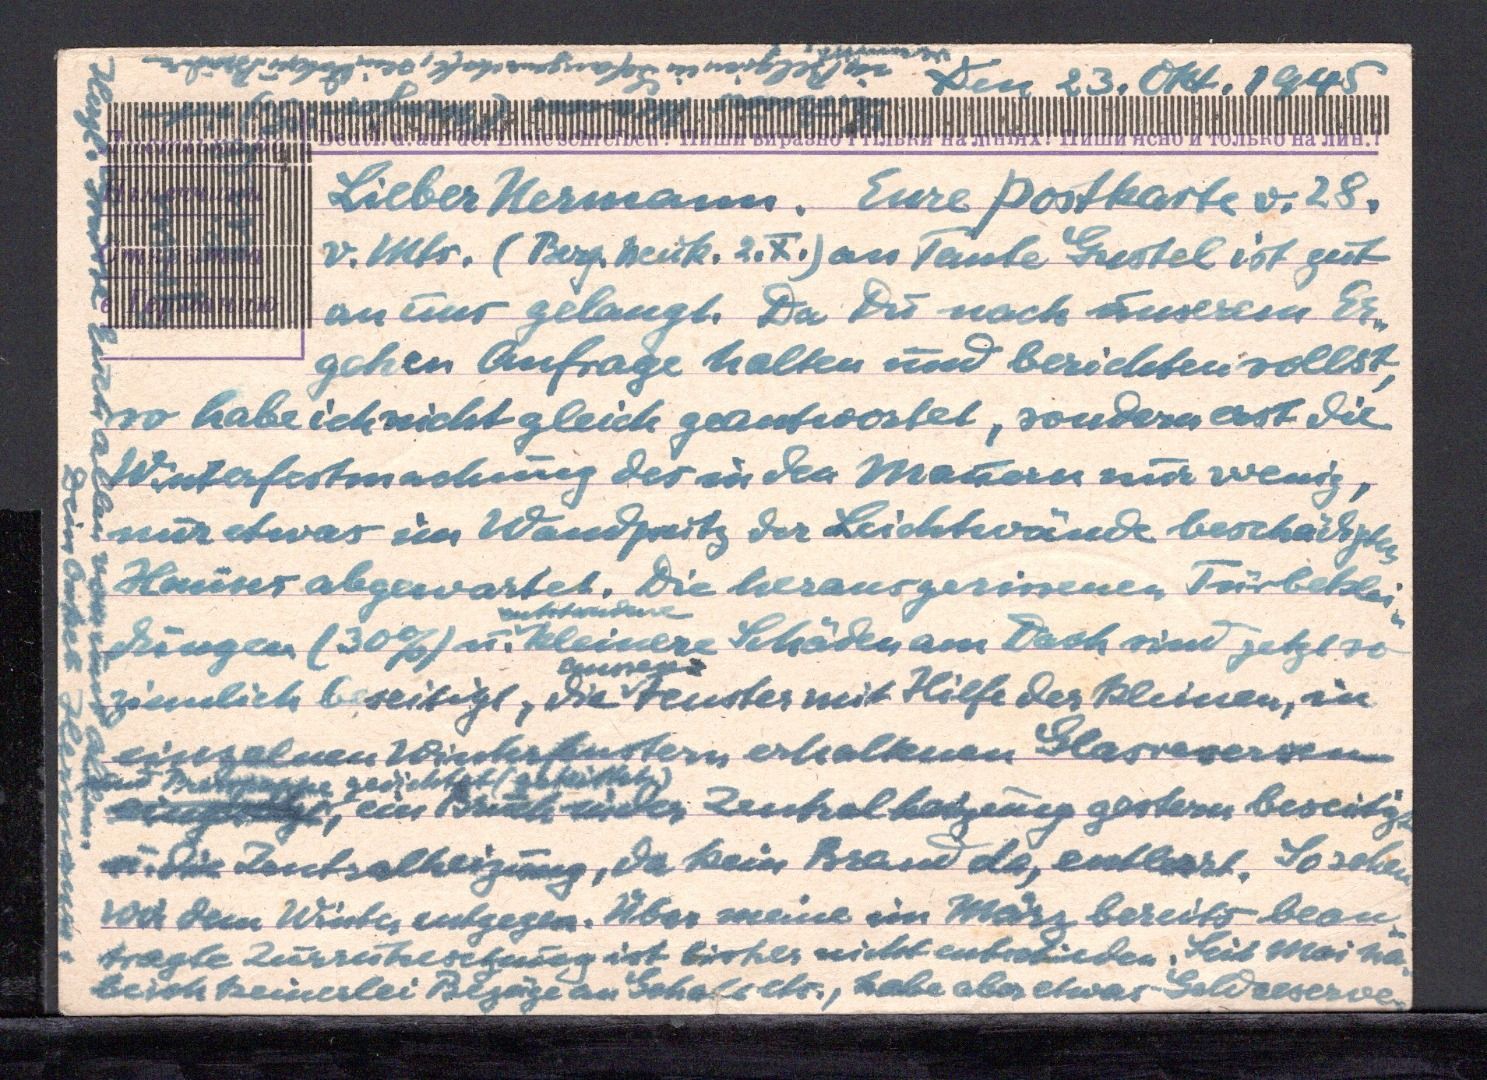 Den 23. Okt. 1945
Deutl. u. auf der Linie schreiben! Пиши виразно і тільки на лініях! Пиши ясно и только на лин.!
Lieber Hermann. Eure Postkarte v. 28.
v. Mts. ( 2.X.) an Tante Gustel ist gut
an uns gelangt. Da Du nach unserem Er-
gehen Anfrage halten und berichten sollst,
so habe ich nicht gleich geantwortet, sondern erst die
Winterfestmachung des in den Mauern nur wenig,
nur etwas im Wandputz der Leichtwände beschädigten
Hauses abgewartet. Die herausgerissenen Türbeklei-
dungen (30%) u. kleinere Schäden am Dach sind jetzt so
ziemlich beseitigt, die äusseren Fenster mit Hilfe der kleinen, in
einzelnen Winterfenstern erhaltenen Glasreserven
ein Bruch in der Zentralheizung gestern beseitigt
u. die Zentralheizung, da kein Brand da, entleert. So sehen
wir dem Winter entgegen. Über meine im März bereits bean-
tragte Zurruhesetzung ist bisher nicht entschieden. Seit Mai ha-
be ich keinerlei Bezüge an Gehalt etc., habe aber etwas Geldreserve.
Herzl. Grüsse Euch allen
Dein Hermann.